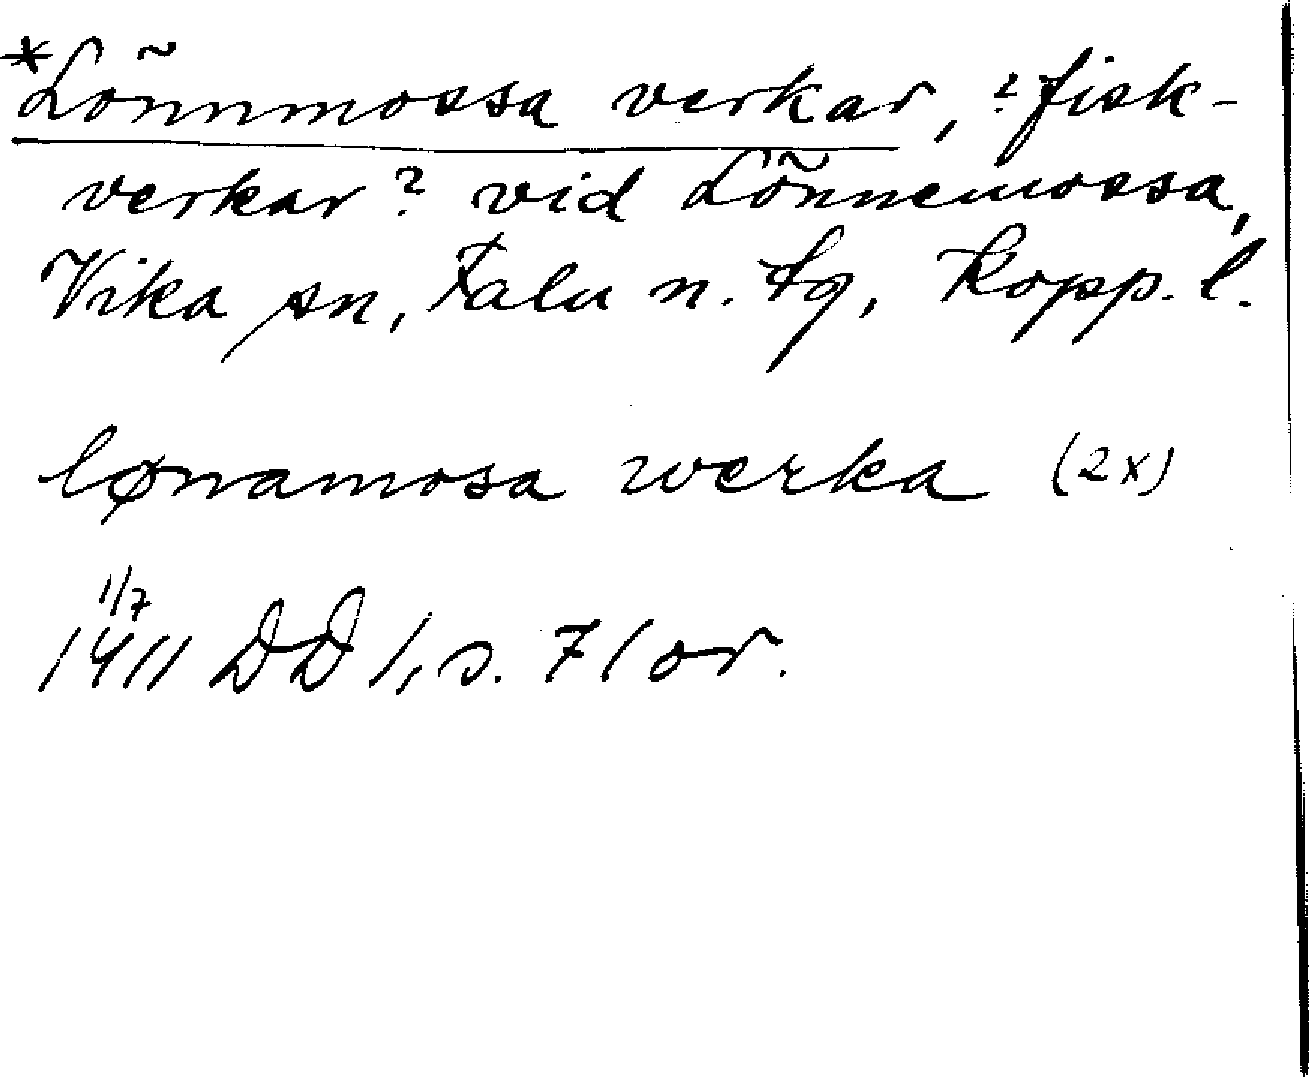 *Lönnmossa verkar, ? fisk-
verkar? vid Lönnemossa,
Vika sn, Falu n. tg, Kopp. l.
lønamosa werka (2x)
1/7
1411 DD 1, s. 71 or.